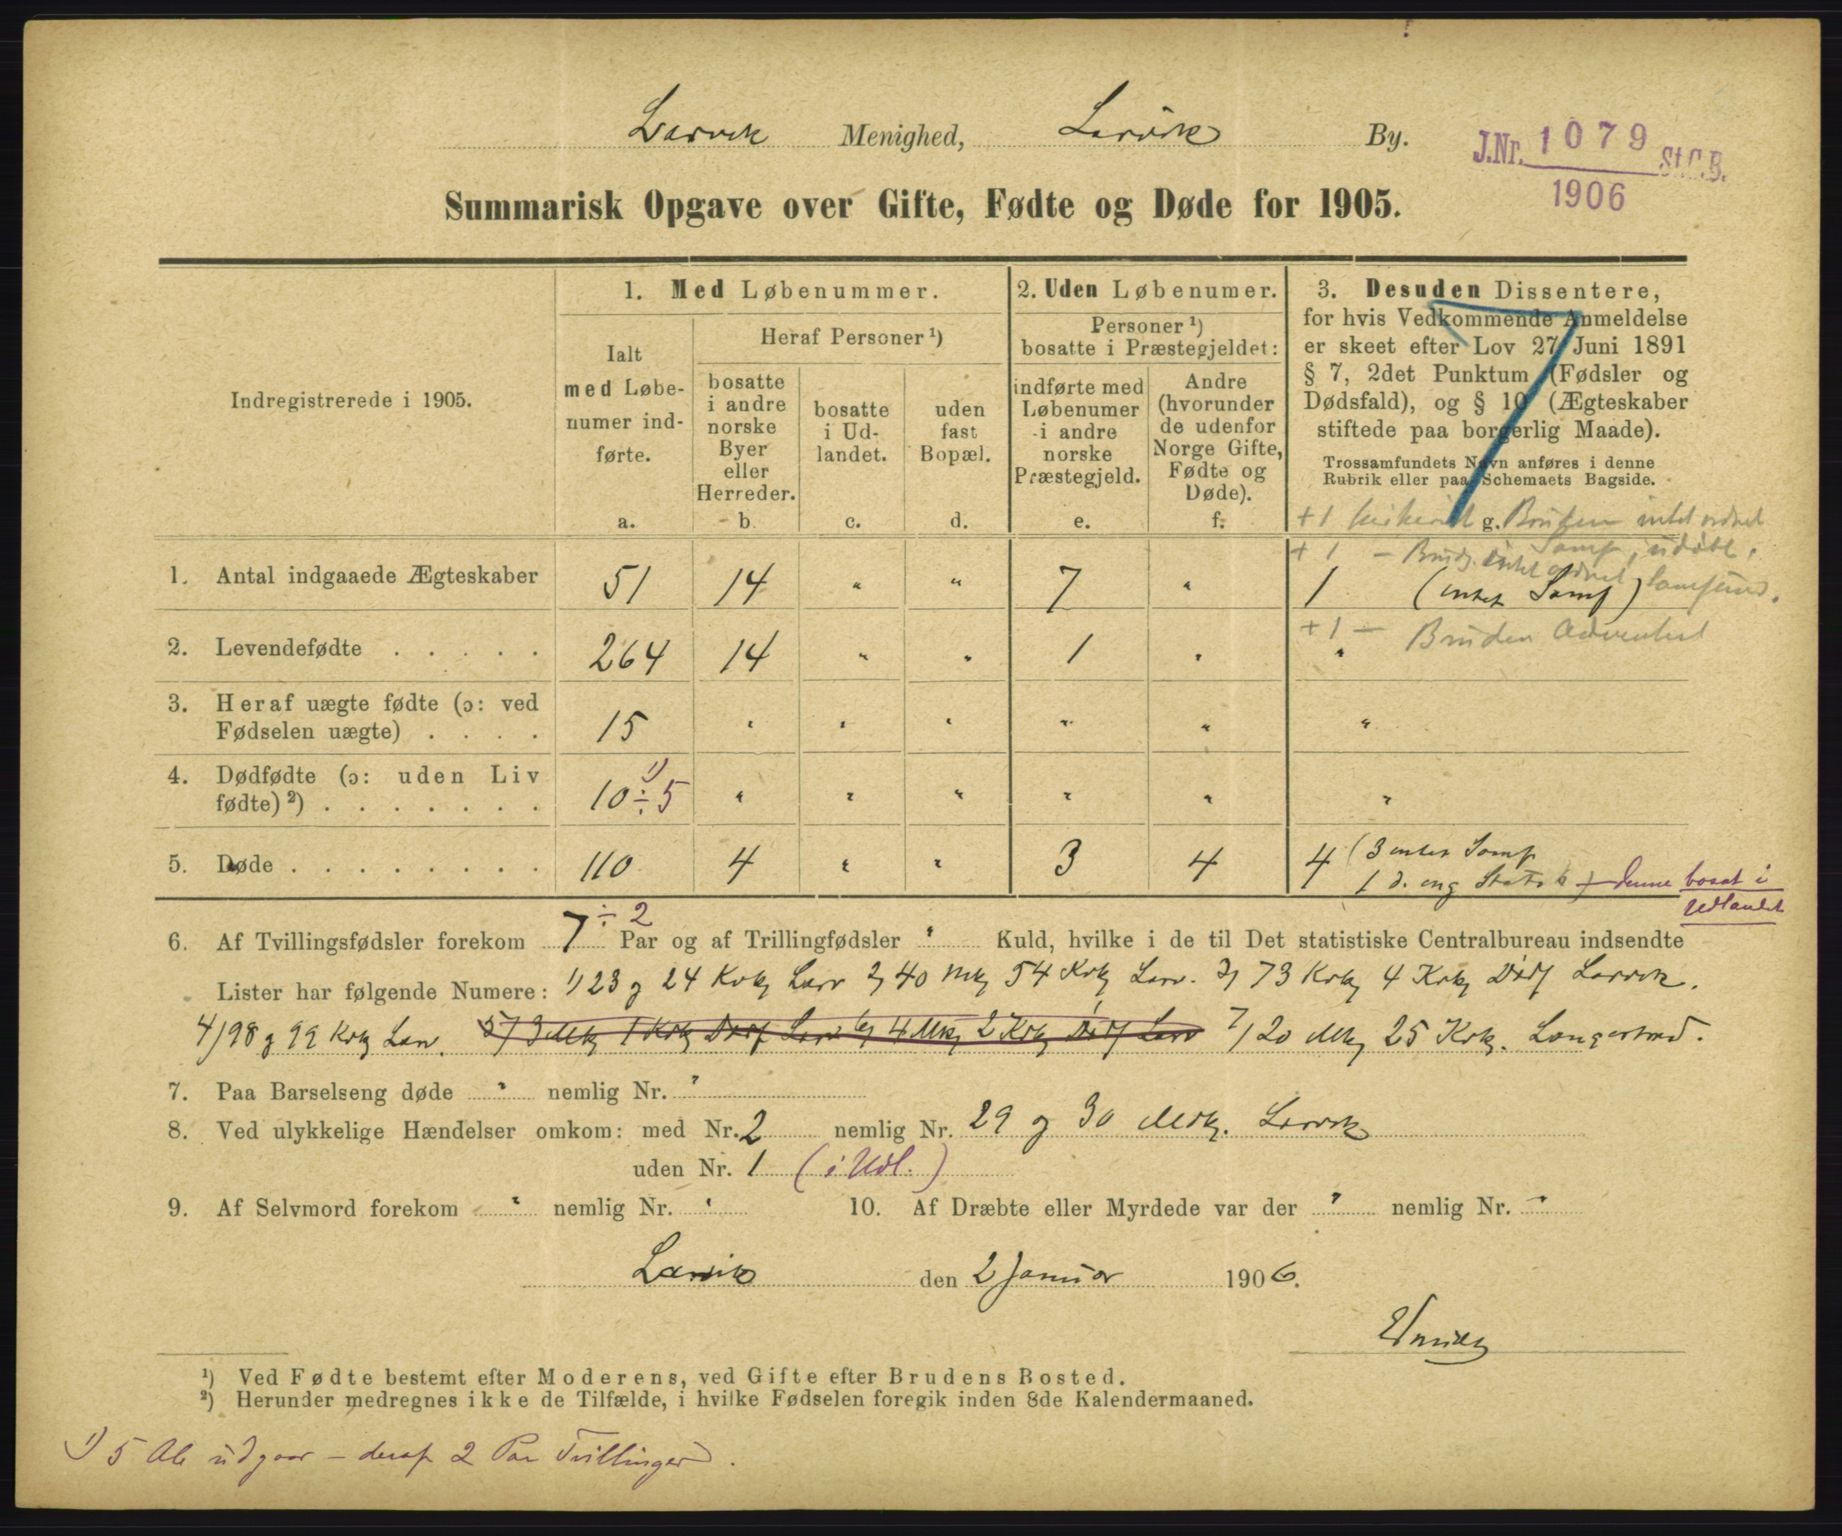 Larvik Menighed, Larvik By.
J.Nr. 1079 St.C.B.
1906
Summarisk Opgave over Gifte, Fødte og Døde for 1905.
Indregistrerede i 1905.
1. Med Løbenummer.
Ialt
med Løbe-
numer ind-
førte.
a.
Heraf Personer ¹)
bosatte
i andre
norske
Byer
eller
Herreder.
b.
bosatte
i Ud-
landet.
c.
uden
fast
Bopæl.
d.
2. Uden Løbenumer.
Personer ¹)
bosatte i Præstegjeldet:
indførte med
Løbenumer
i andre
norske
Præstegjeld.
e.
Andre
(hvorunder
de udenfor
Norge Gifte,
Fødte og
Døde).
f.
3. Desuden Dissentere,
for hvis Vedkommende Anmeldelse
er skeet efter Lov 27 Juni 1891
§ 7, 2det Punktum (Fødsler og
Dødsfald), og § 10 (Ægteskaber
stiftede paa borgerlig Maade).
Trossamfundets Navn anføres i denne
Rubrik eller paa Schemaets Bagside.
7
g.
+1 Bruden intet ordnet
Samf. udøbt.
+1 — Brudg. intet ordnet Samfund.
1. Antal indgaaede Ægteskaber 51 14 " " 7 " 1 (intet Samf)
+1 — Bruden Adventist
2. Levendefødte . . . . . 264 14 " " 1 " "
3. Heraf uægte fødte (ɔ: ved
Fødselen uægte) . . . . 15 " " " " " "
4. Dødfødte (ɔ: uden Liv
fødte) ²) . . . . . . . 10 ÷ 5 ¹) " " " " " "
5. Døde . . . . . . . . 110 4 " " 3 4 4 (3 intet Samf
1 d. eng Statsk) — denne bosat i
Udlandet
6. Af Tvillingsfødsler forekom 7 ÷ 2 Par og af Trillingfødsler " Kuld, hvilke i de til Det statistiske Centralbureau indsendte
Lister har følgende Numere: 1) 23 og 24 Kvk Larv 2) 40 Mk 54 Kvk Larv. 3) 73 Kvk 4 Kvk Dødf Larvik.
4) 98 og 99 Kvk Larv. 5) 3 Mk 1 Kvk Dødf Larv 6) 4 Mk 2 Kvk Dødf Larv 7) 20 Mk 25 Kvk. Langestrand.
7. Paa Barselseng døde " nemlig Nr. "
8. Ved ulykkelige Hændelser omkom: med Nr. 2 nemlig Nr. 29 og 30 Mdk. Larvik
uden Nr. 1 (i Udl.)
9. Af Selvmord forekom " nemlig Nr. " 10. Af Dræbte eller Myrdede var der " nemlig Nr. "
Larvik den 2 Januar 1906.
¹) Ved Fødte bestemt efter Moderens, ved Gifte efter Brudens Bosted.
²) Herunder medregnes ikke de Tilfælde, i hvilke Fødselen foregik inden 8de Kalendermaaned.
¹) 5 Ab udgaar — deraf 2 Par Tvillinger.